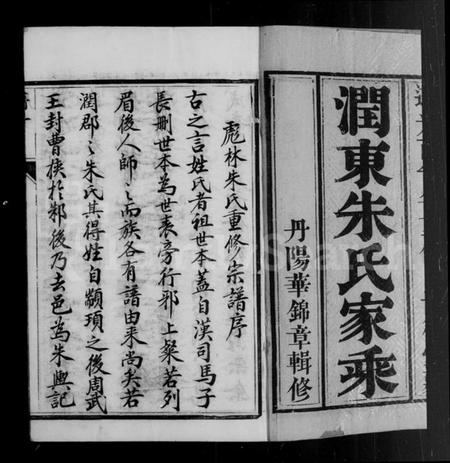 潤東朱氏家乘
丹陽華錦章輯修
彪林朱氏重修宗譜序
古之言姓氏者祖世本蓋自漢司馬子
長刪世本為世表旁行邪上粲若列
眉後人師〻而族各有譜由来尚矣若
潤郡〻朱氏其得姓自顓頊之後周武
王封曹俠於邾後乃去邑為朱輿記